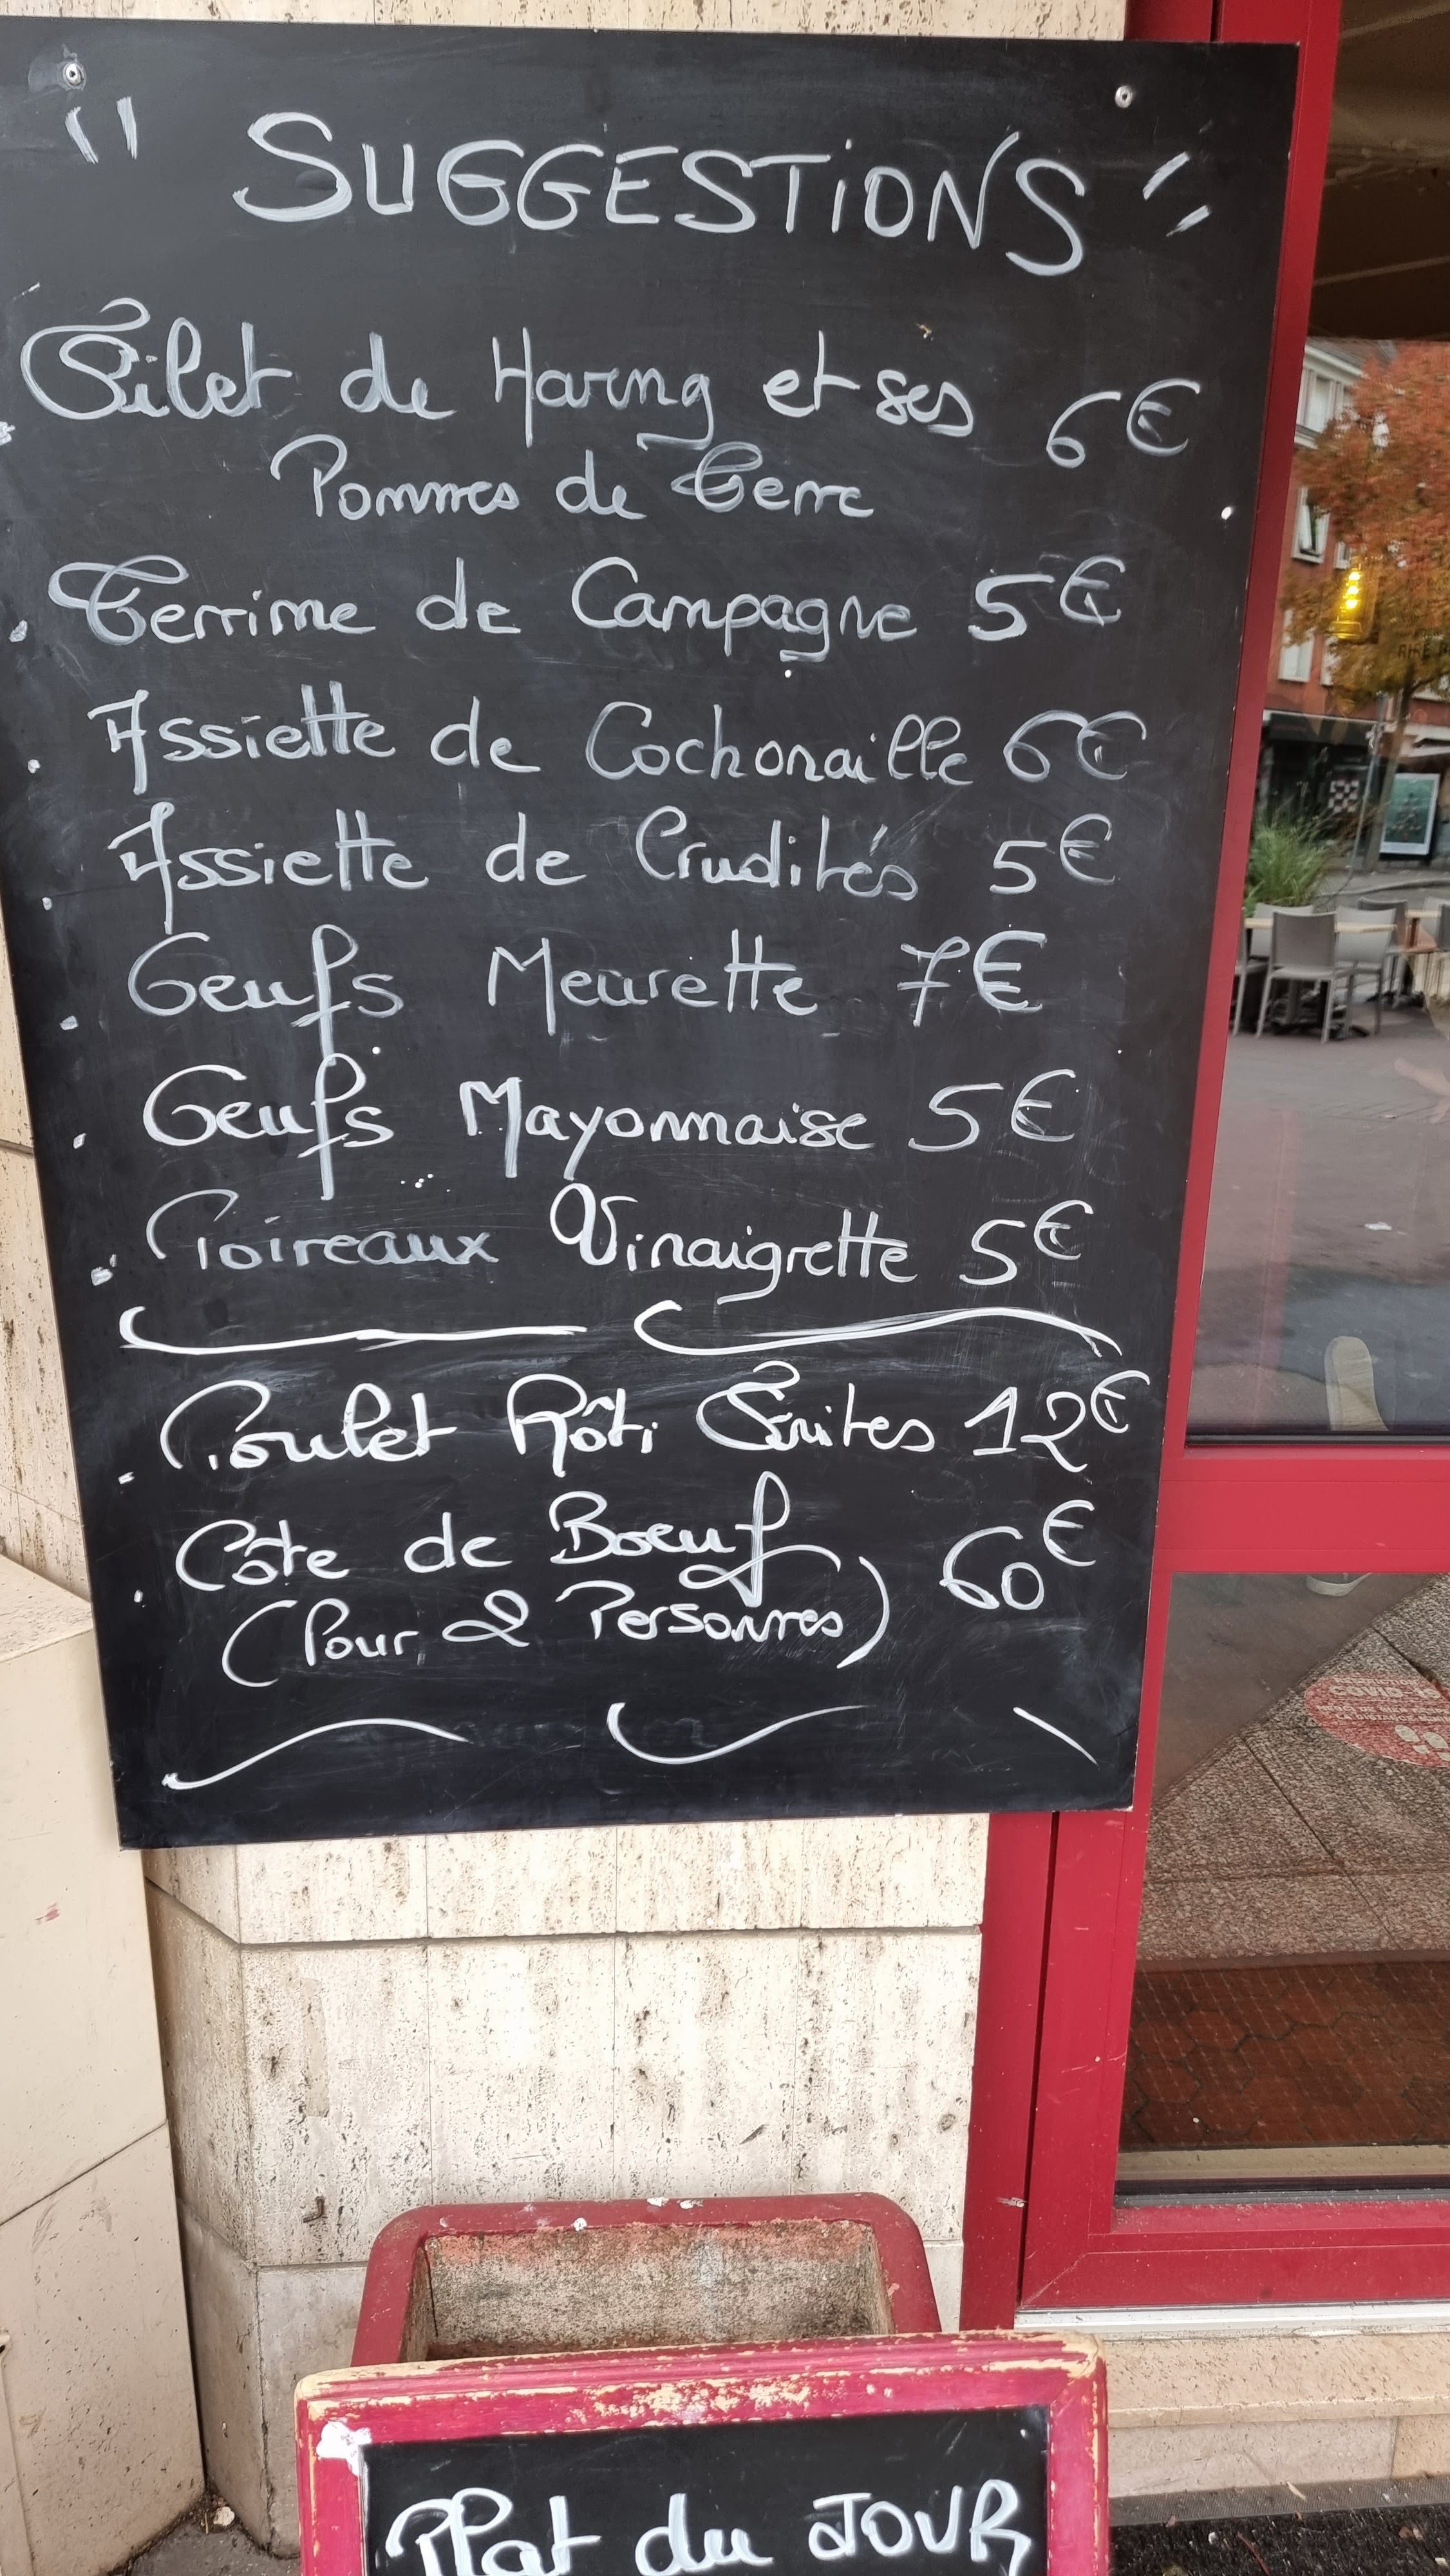 " SUGGESTIONS "
Filet de Hareng et ses 6€
Pommes de Terre
Terrine de Campagne 5€
Assiette de Cochonaille 6€
Assiette de Crudités 5€
Oeufs Meurette 7€
Oeufs Mayonnaise 5€
Poireaux Vinaigrette 5€
Poulet Rôti Frites 12€
Côte de Boeuf 60€
(Pour 2 Personnes)
Plat du JOUR